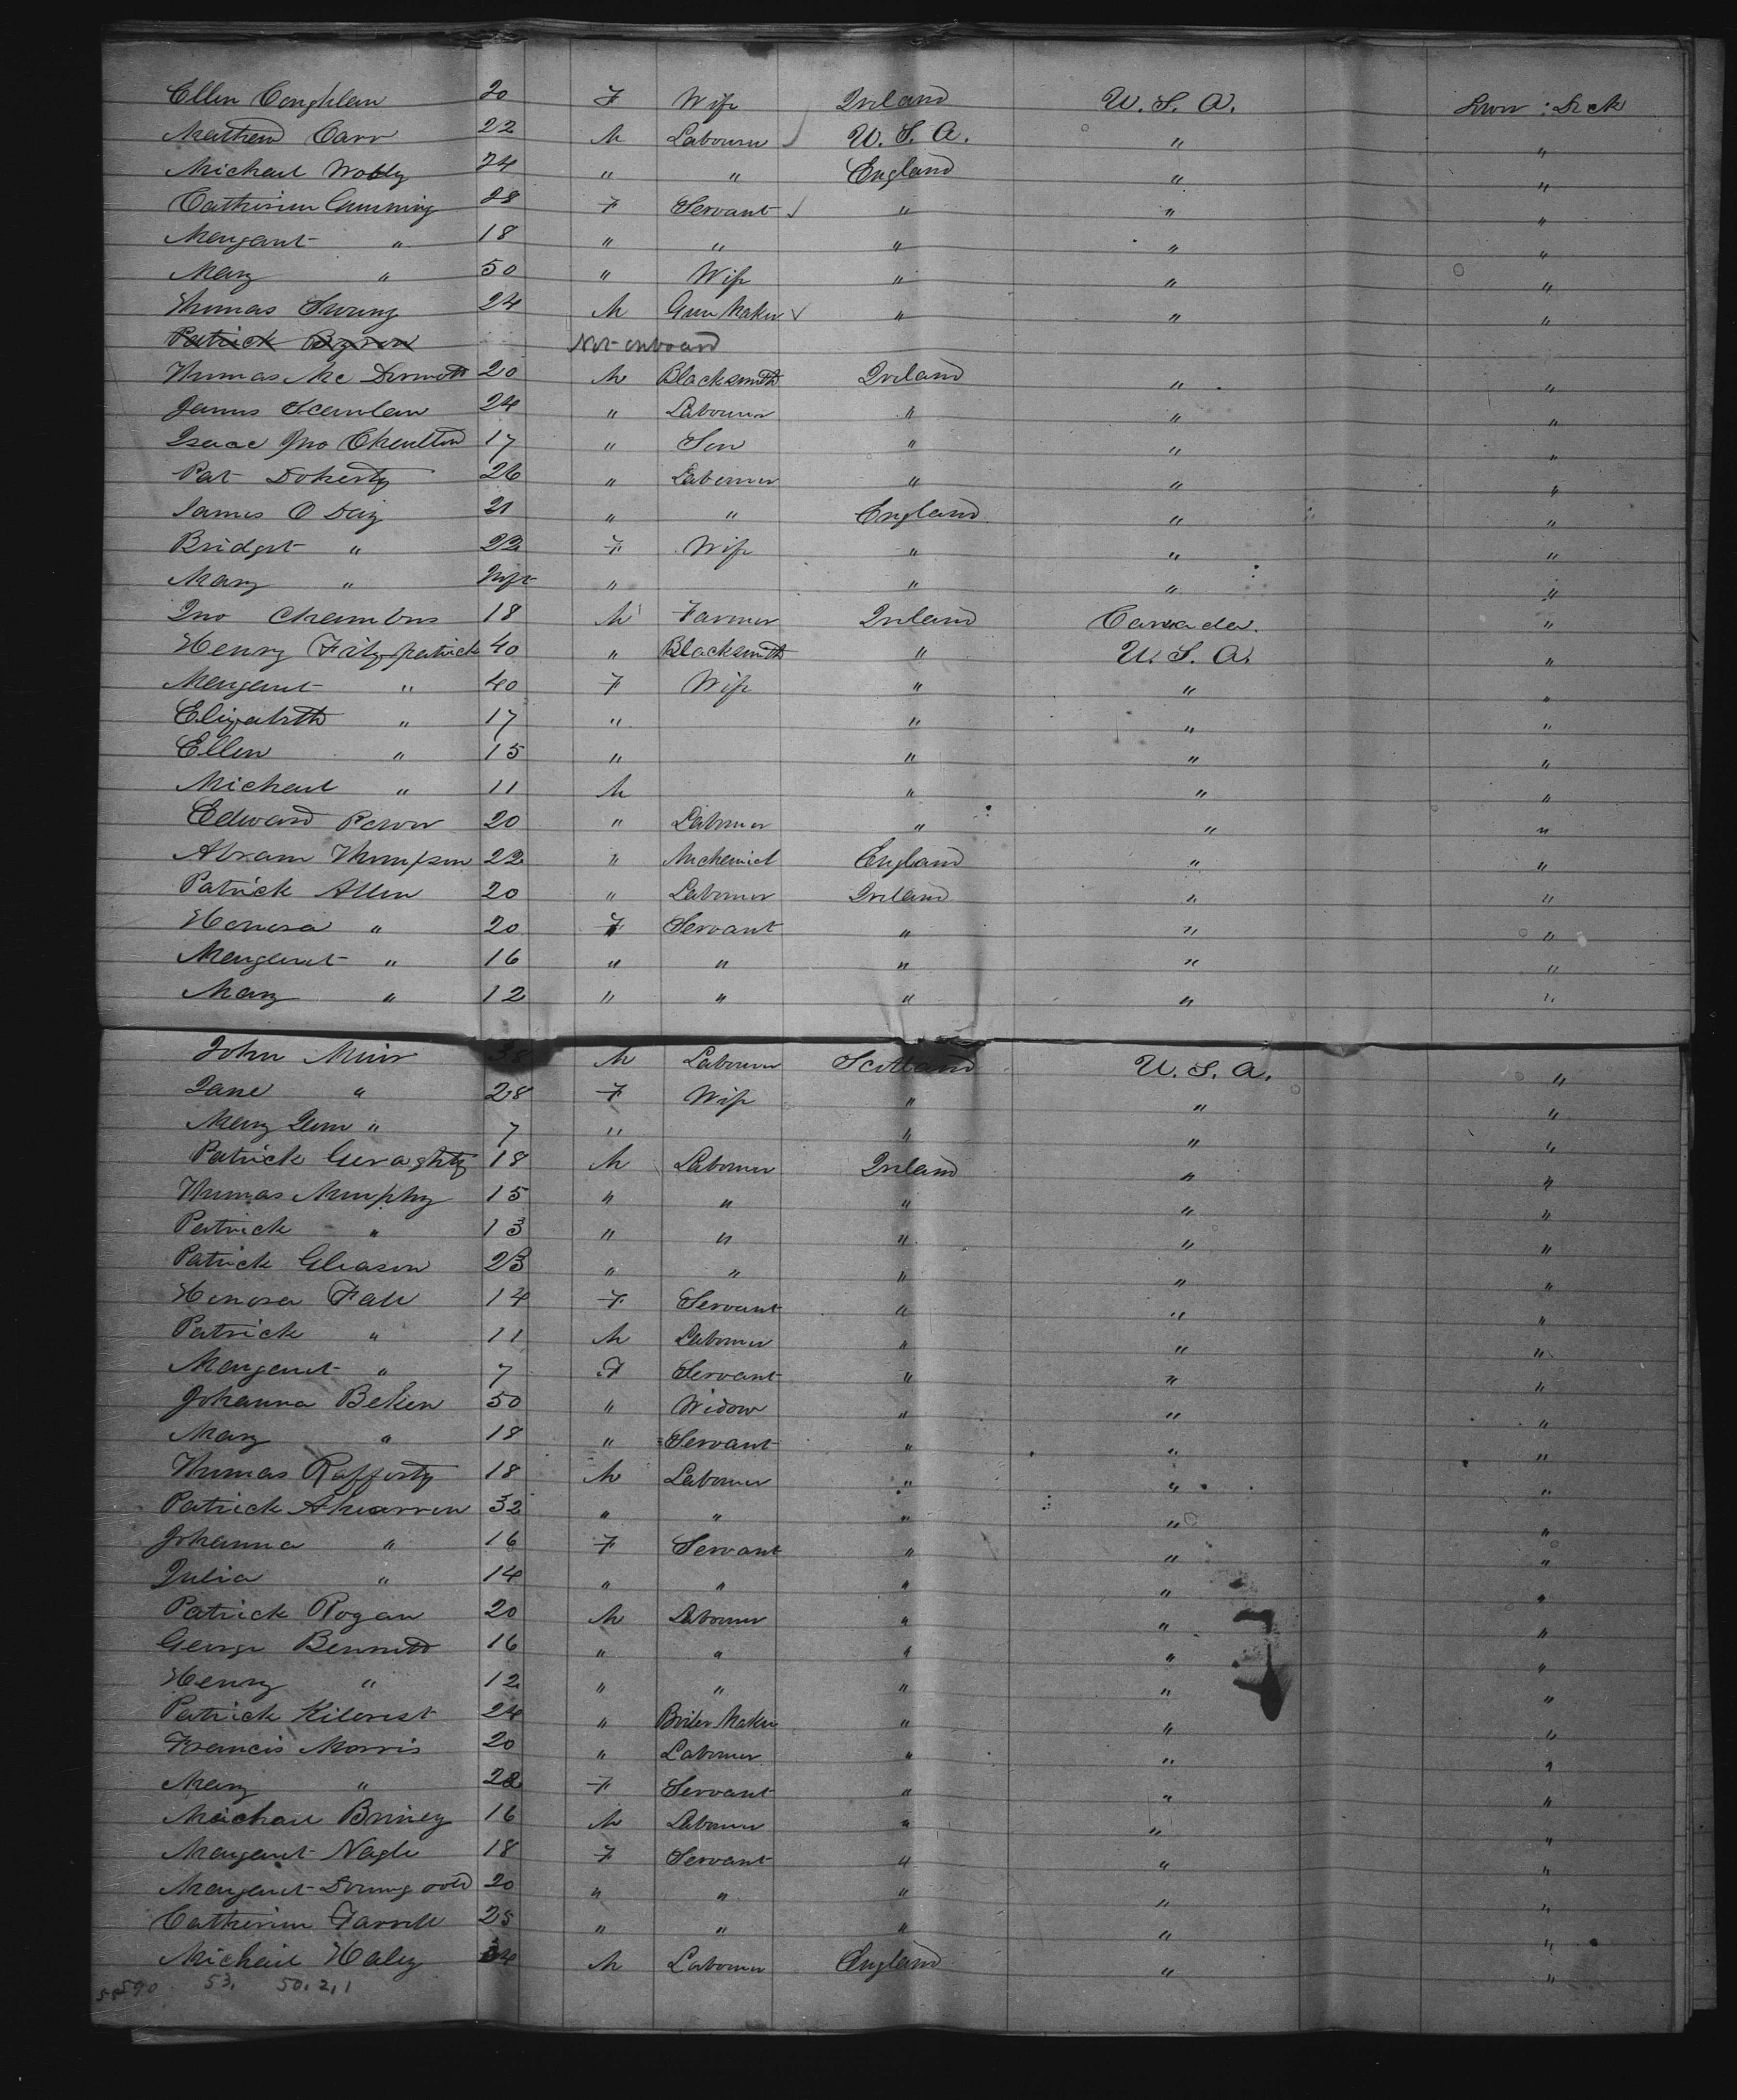 Ellen Coughlan 20 F Wife Ireland U. S. A. Lower Deck
Mathew Carr 22 M Labourer U. S. A. " "
Michael 24 " " England " "
Catherine Cumming 28 F Servant " " "
Margaret " 18 " " " " "
Mary " 50 " Wife " " "
Thomas 24 M Gun Maker " " "
Patrick Byron Not onboard
Thomas Mc Dermott 20 M Blacksmith Ireland " "
James Scanlan 24 " Labourer " " "
Isaac Jno Charlton 17 " Son " " "
Pat Doherty 26 " Labourer " " "
James O Day 21 " " England " "
Bridget " 22 F Wife " " "
Mary " Inft " " " "
Jno Chambers 18 M Farmer Ireland Canada "
Henry Fitzpatrick 40 " Blacksmith " U. S. A. "
Margaret " 40 F Wife " " "
Elizabeth " 17 " " " "
Ellen " 15 " " " "
Michael " 11 M " " "
Edward Power 20 " Labourer " " "
Abram Thompson 22 " Mechanic England " "
Patrick Allen 20 " Labourer Ireland " "
Honora " 20 F Servant " " "
Margaret " 16 " " " " "
Mary " 12 " " " " "
John Muir 38 M Labourer Scotland U. S. A. "
Jane " 28 F Wife " " "
Mary Jane " 7 " " " "
Patrick Geraghty 18 M Labourer Ireland " "
Thomas Murphy 15 " " " " "
Patrick " 13 " " " " "
Patrick Gleason 23 " " " " "
Honora Fall 14 F Servant " " "
Patrick " 11 M Labourer " " "
Margaret " 7 F Servant " " "
Johanna Beken 50 " Widow " " "
Mary " 18 " Servant " " "
Thomas Rafferty 18 M Labourer " " "
Patrick Ahearren 32 " " " " "
Johanna " 16 F Servant " " "
Julia " 14 " " " " "
Patrick Rogan 20 M Labourer " " "
George Bennett 16 " " " " "
Henry " 12 " " " " "
Patrick Kilcrest 24 " Boiler Maker " " "
Francis Morris 20 " Labourer " " "
Mary " 22 F Servant " " "
Michael Briney 16 M Labourer " " "
Margaret Nagle 18 F Servant " " "
Margaret 20 " " " " "
Catherine Farrell 25 " " " " "
Michael Haley 24 M Labourer England " "
590 53, 50. 2, 1